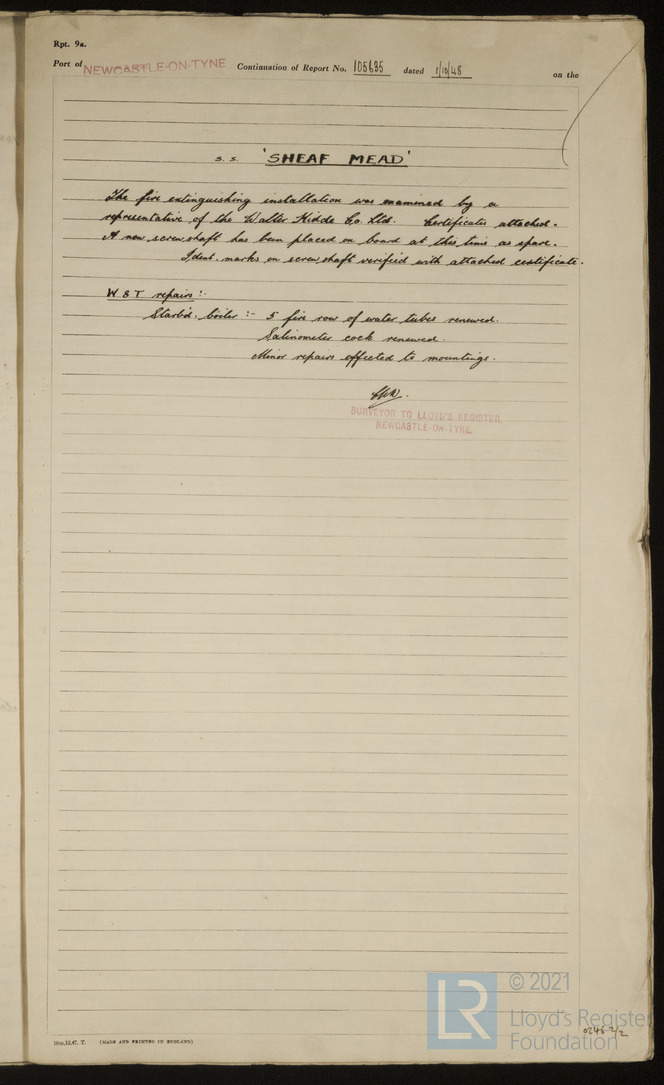 Rpt. 9a.
Port of NEWCASTLE-ON-TYNE Continuation of Report No. 105635 dated 1/10/48 on the
s.s. 'SHEAF MEAD'
The fire extinguishing installation was examined by a
representative of the Walter Kidde Co. Ltd. Certificates attached.
A new screwshaft has been placed on board at this time as spare.
Ident. marks on screwshaft verified with attached certificate.
W & T repairs :-
Starb'd. boiler :- 5 fire row of water tubes renewed.
Salinometer cock renewed.
Minor repairs effected to mountings.
SURVEYOR TO LLOYD'S REGISTER,
NEWCASTLE-ON-TYNE.
T. (MADE AND PRINTED IN ENGLAND)
© 2021
LR
Lloyd's Register
Foundation
0246 2/2